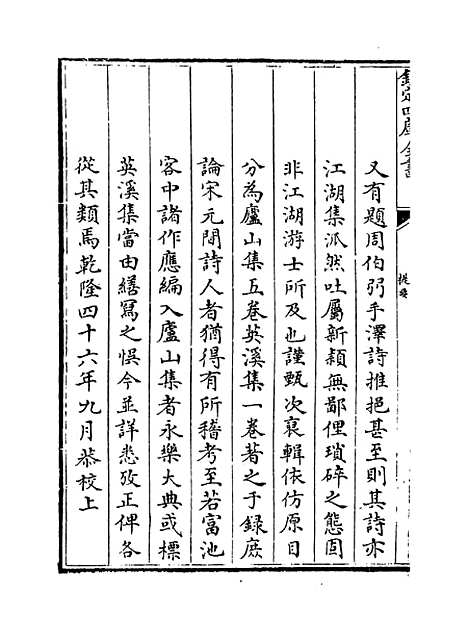 欽定四庫全書
提要
又有題周伯弜手澤詩推挹甚至則其詩亦
江湖集派然吐屬新穎無鄙俚瑣碎之態固
非江湖游士所及也謹甄次裒輯依仿原目
分為廬山集五卷英溪集一卷著之于錄庶
論宋元間詩人者猶得有所稽考至若富池
客中諸作應編入廬山集者永樂大典或標
英溪集當由繕寫之悞今並詳悉攷正俾各
從其類焉乾隆四十六年九月恭校上